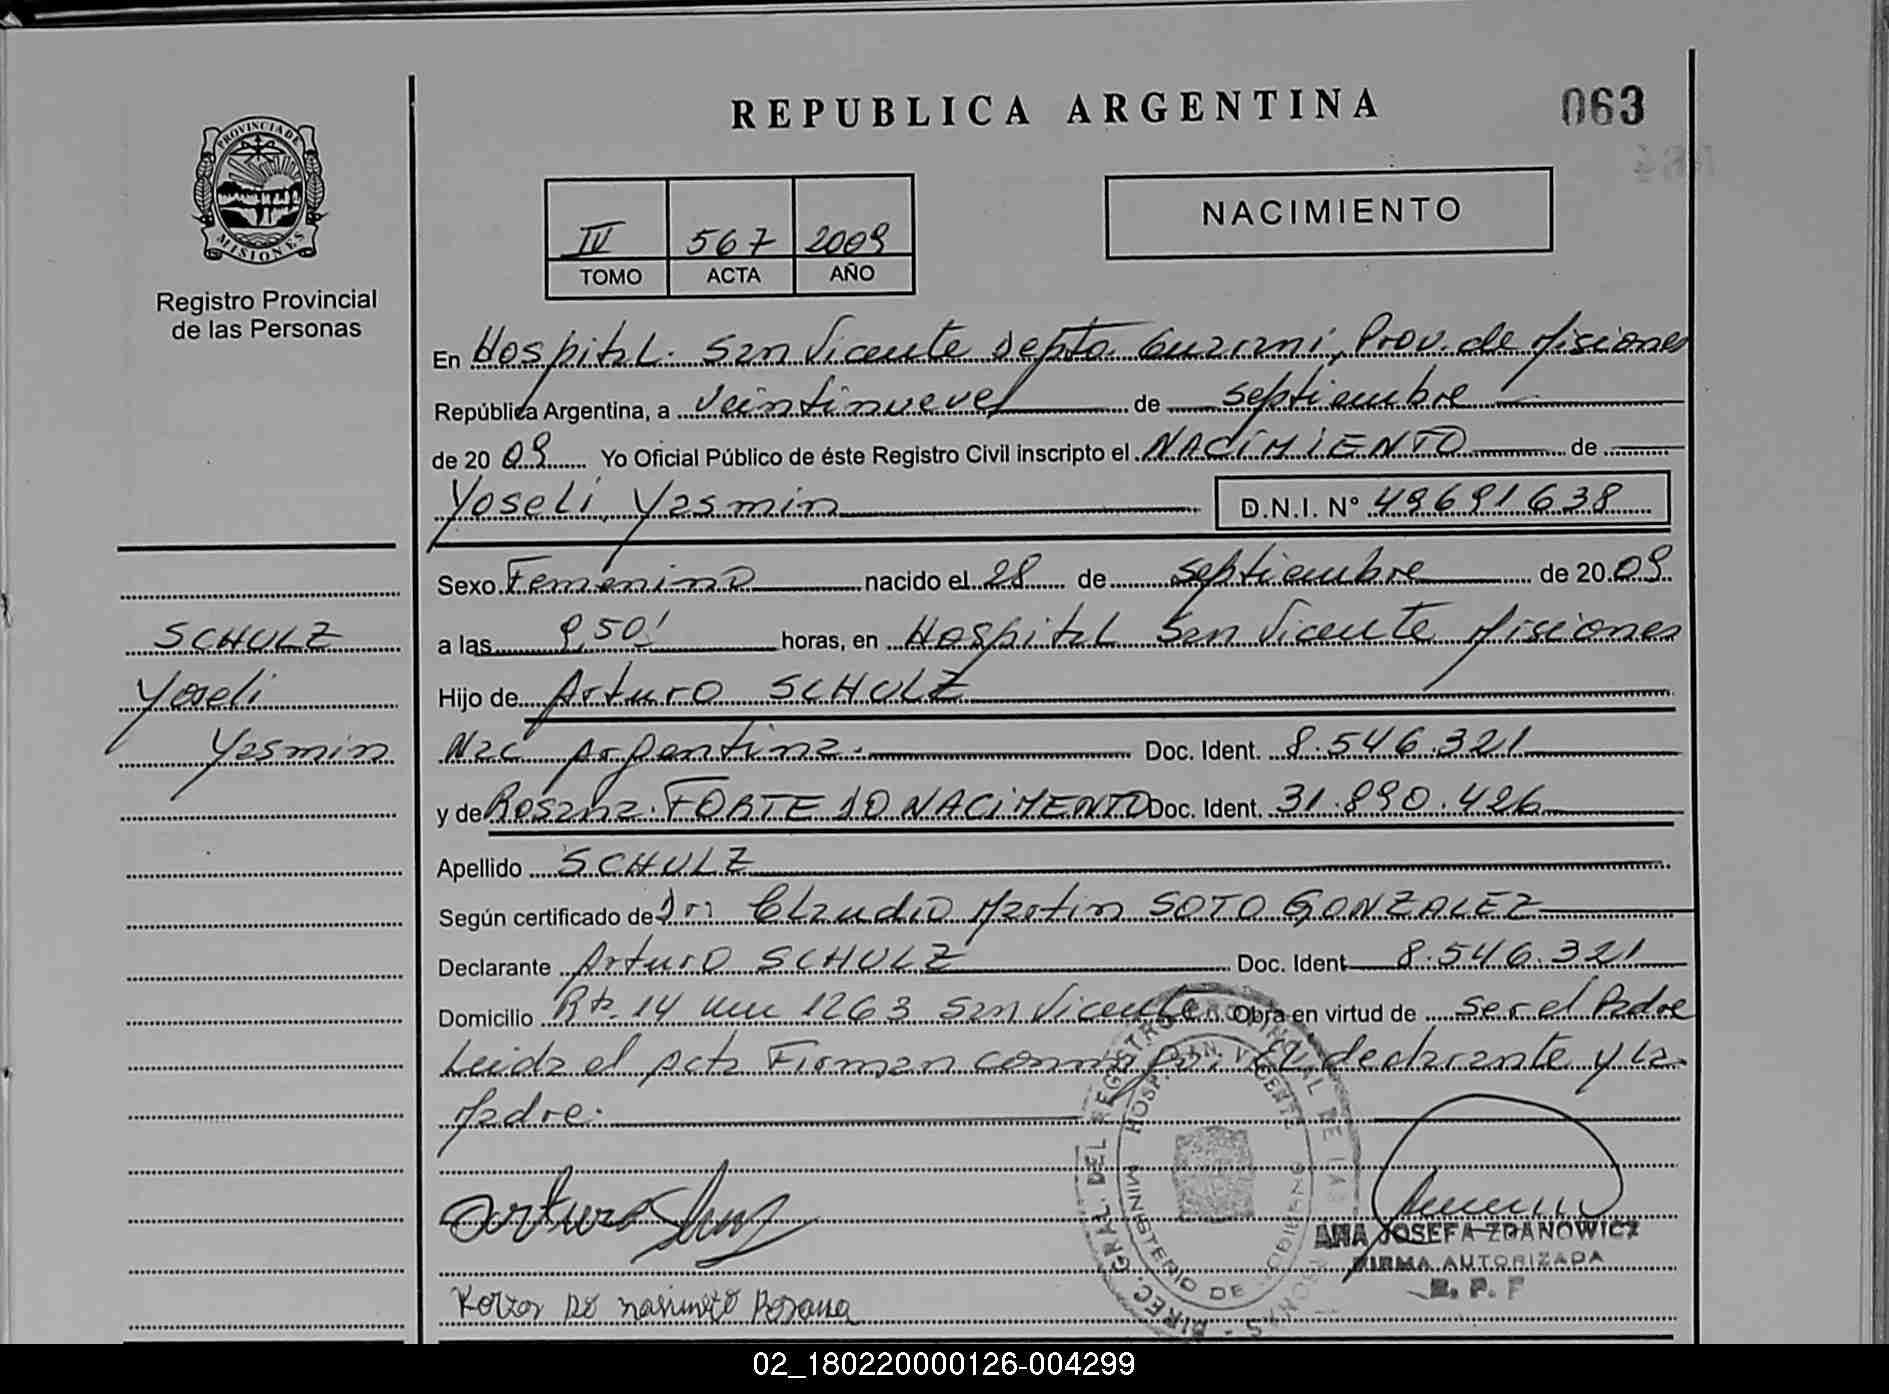 REPUBLICA ARGENTINA
063
PROVINCIA DE
MISIONES
Registro Provincial
de las Personas
IV 567 2009
TOMO ACTA AÑO
NACIMIENTO
En Hospital. San Vicente Depto. Guarani, Prov. de Misiones
República Argentina, a veintinueve de septiembre
de 20 09 Yo Oficial Público de éste Registro Civil inscripto el NACIMIENTO de
Yoseli Yasmin D.N.I. N° 49691638
Sexo Femenino nacido el 28 de septiembre de 20 09
SCHULZ
Yoseli
Yasmin
a las 9,50' horas, en Hospital San Vicente Misiones
Hijo de Arturo SCHULZ
Nac Argentina. Doc. Ident. 8.546.321
y de Rosana. FORTE DO NACIMENTO Doc. Ident. 31.890.426
Apellido SCHULZ
Según certificado de Dr: Claudio Martin SOTO GONZALEZ
Declarante Arturo SCHULZ Doc. Ident 8.546.321
Domicilio Rta. 14 km 1263 San Vicente. Obra en virtud de ser el Padre
Leida el acta Firman conmigo: El declarante y la
Madre.
Arturo
ANA JOSEFA ZDANOWICZ
FIRMA AUTORIZADA
R. P. P
DIREC. GRAL. DEL REGISTRO PROVINCIAL DE LAS PERSONAS
HOSP. SAN VICENTE
MINISTERIO DE GOBIERNO
02_180220000126-004299